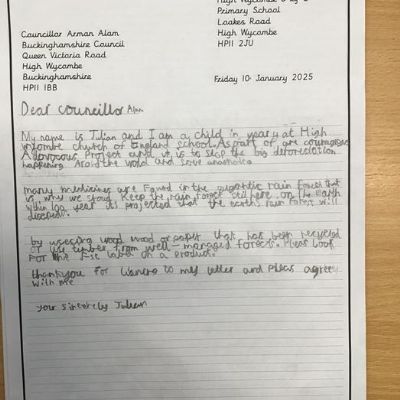 Primary School
Loakes Road
High Wycombe
HP11 2JU
Councillor Arman Alam
Buckinghamshire Council
Queen Victoria Road
High Wycombe
Buckinghamshire
HP11 1BB
Friday 10 January 2025
Dear councillor Alam
My name is Julian and I am a child in year 4 at High
church of England school. As part of our courageous
Project and it is to stop the big deforestation
happening around the world and save
many medicines are found in the gigantic rain forest that
is why we should keep the rain forest still here on the Earth
within 100 year its projected that the earths rain forest will
by useing wood or paper that has been recycled
or use timber from well-managed forests. Pleas look
For the label on a product.
thankyou for lisening to my letter and pleas agree
with me
your sincerely Julian